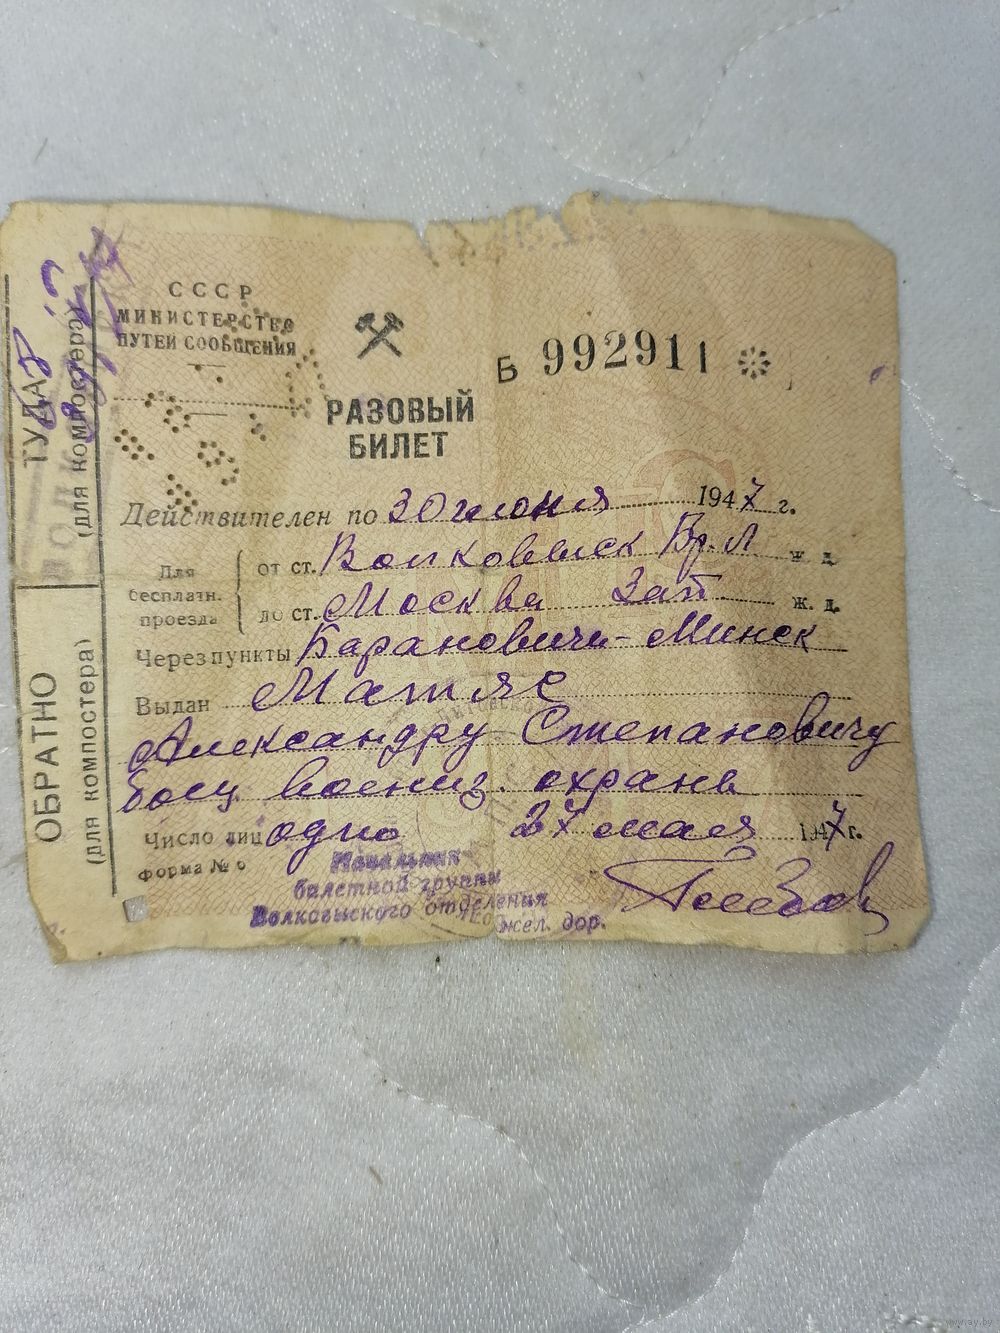 СССР
МИНИСТЕРСТВО
ПУТЕЙ СООБЩЕНИЯ
Б 992911
РАЗОВЫЙ
БИЛЕТ
Действителен по 30 июня 1947 г.
Для бесплатн. проезда
от ст. Волковыск Бр.Л ж. д.
до ст. Москва Зап. ж. д.
Через пункты Барановичи-Минск
Выдан Матяс
Александру Степановичу
боец воениз. охраны
Число лиц одно 27 мая 1947 г.
форма № 6
Начальник
билетной группы
Волковысского отделения
жел. дор.
ТУДА
(для компостера)
ОБРАТНО
(для компостера)
www.ay.by